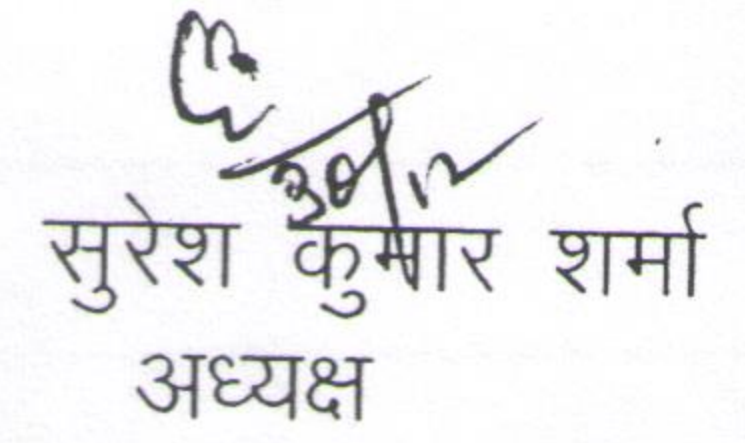 सुरेश कुमार शर्मा
अध्यक्ष